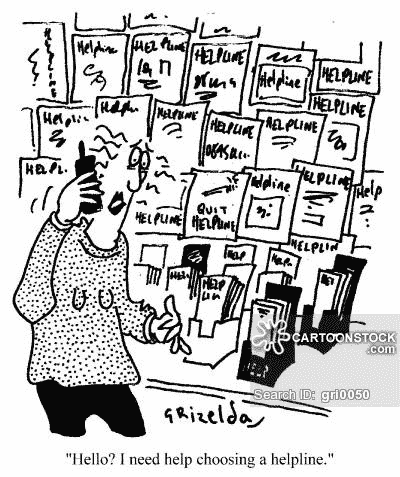 Helpline
HELPLINE
HELPLINE
HELPLINE
Helpline
HELPLINE
HELPLINE
HELPLINE
HELPLINE
HELPLINE
HELPLINE
Helpline
HELPLINE
Help
HELPLINE
QUIT
HELPLINE
HELPLIN
HELP
HELP
LIN
HELP
CARTOONSTOCK
.com
Search ID: grl0050
GRizelda
"Hello? I need help choosing a helpline."